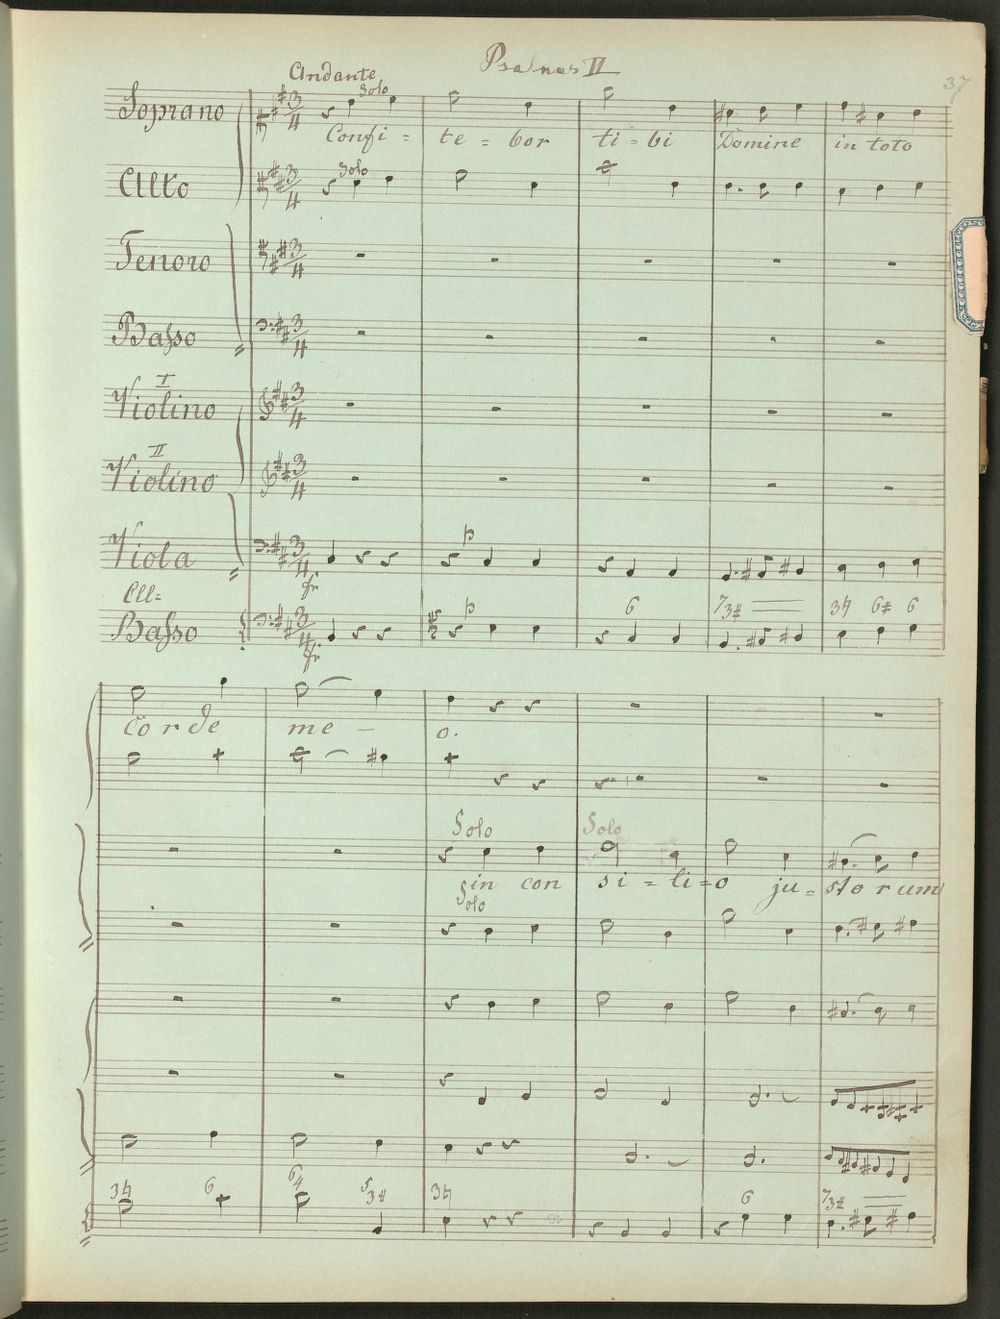 Psalmus II
37
Andante
Soprano
Solo
Confi = te = bor ti = bi Domine in toto
Alto
Solo
Tenoro
Basso
Violino I
Violino II
Viola
p
fr
6 7 3# 3♮ 6# 6
Basso
p
fr
Corde me – o.
Solo Solo
in con si = li = o ju = storum
Solo
3♮ 6 6 4 5 3# 3♮ 6 7 3#